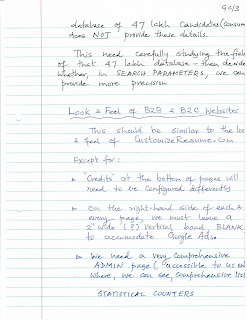 GC/3
database of 47 lakh Candidates (consum
does NOT provide these details.
This need carefully studying the field
of that 47 lakh database - then decide
whether, in SEARCH PARAMETERS, we can
provide more precision
Look & Feel of B2B & B2C Websites
This should be similar to the loo
& feel of CustomizeResume.com
Except for:
"Credits" at the bottom of pages will
need to be configured differently
On the right-hand side of each &
every page, we must leave a
2" wide (?) vertical band BLANK
to accomodate Google Ads.
We need a very comprehensive
ADMIN page (accessible to us on
where, we can see, comprehensive
STATISTICAL COUNTERS